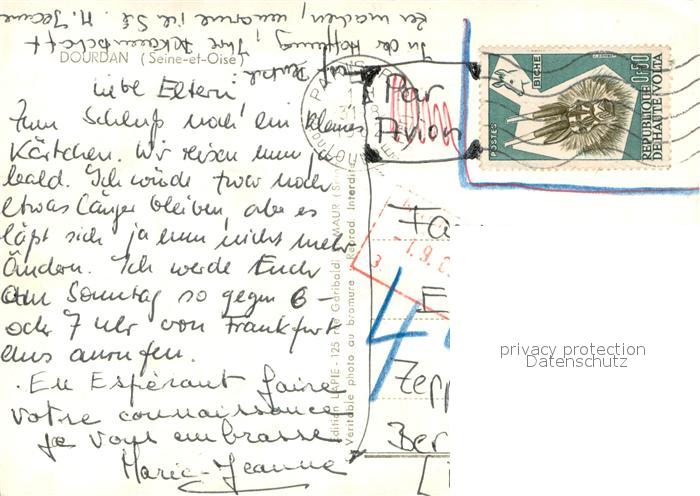 In der Hoffnung, Ihre Bekanntschaft
zu machen, umarme ich Sie. M. Jeanne
DOURDAN (Seine-et-Oise)
liebe Eltern
Zum Schluß noch ein kleines
Kärtchen. Wir reisen nun ja
bald. Ich würde zwar noch
etwas länger bleiben, aber es
läßt sich ja nun nicht mehr
ändern. Ich werde Euch
am Sonntag so gegen 6-
oder 7 Uhr von Frankfurt
aus anrufen.
En Espérant faire
votre connaissance
je vous embrasse
Marie-Jeanne
Edition LAPIE - 125 Garibaldi MAUR (Seine
Véritable photo au bromure - Reprod. Interdite
Par
Avion
POSTES
BICHE
0F50
REPUBLIQUE
DE HAUTE-VOLTA
-1.9.6
3
Fa
E
4
Zepp
Ber
privacy protection
Datenschutz